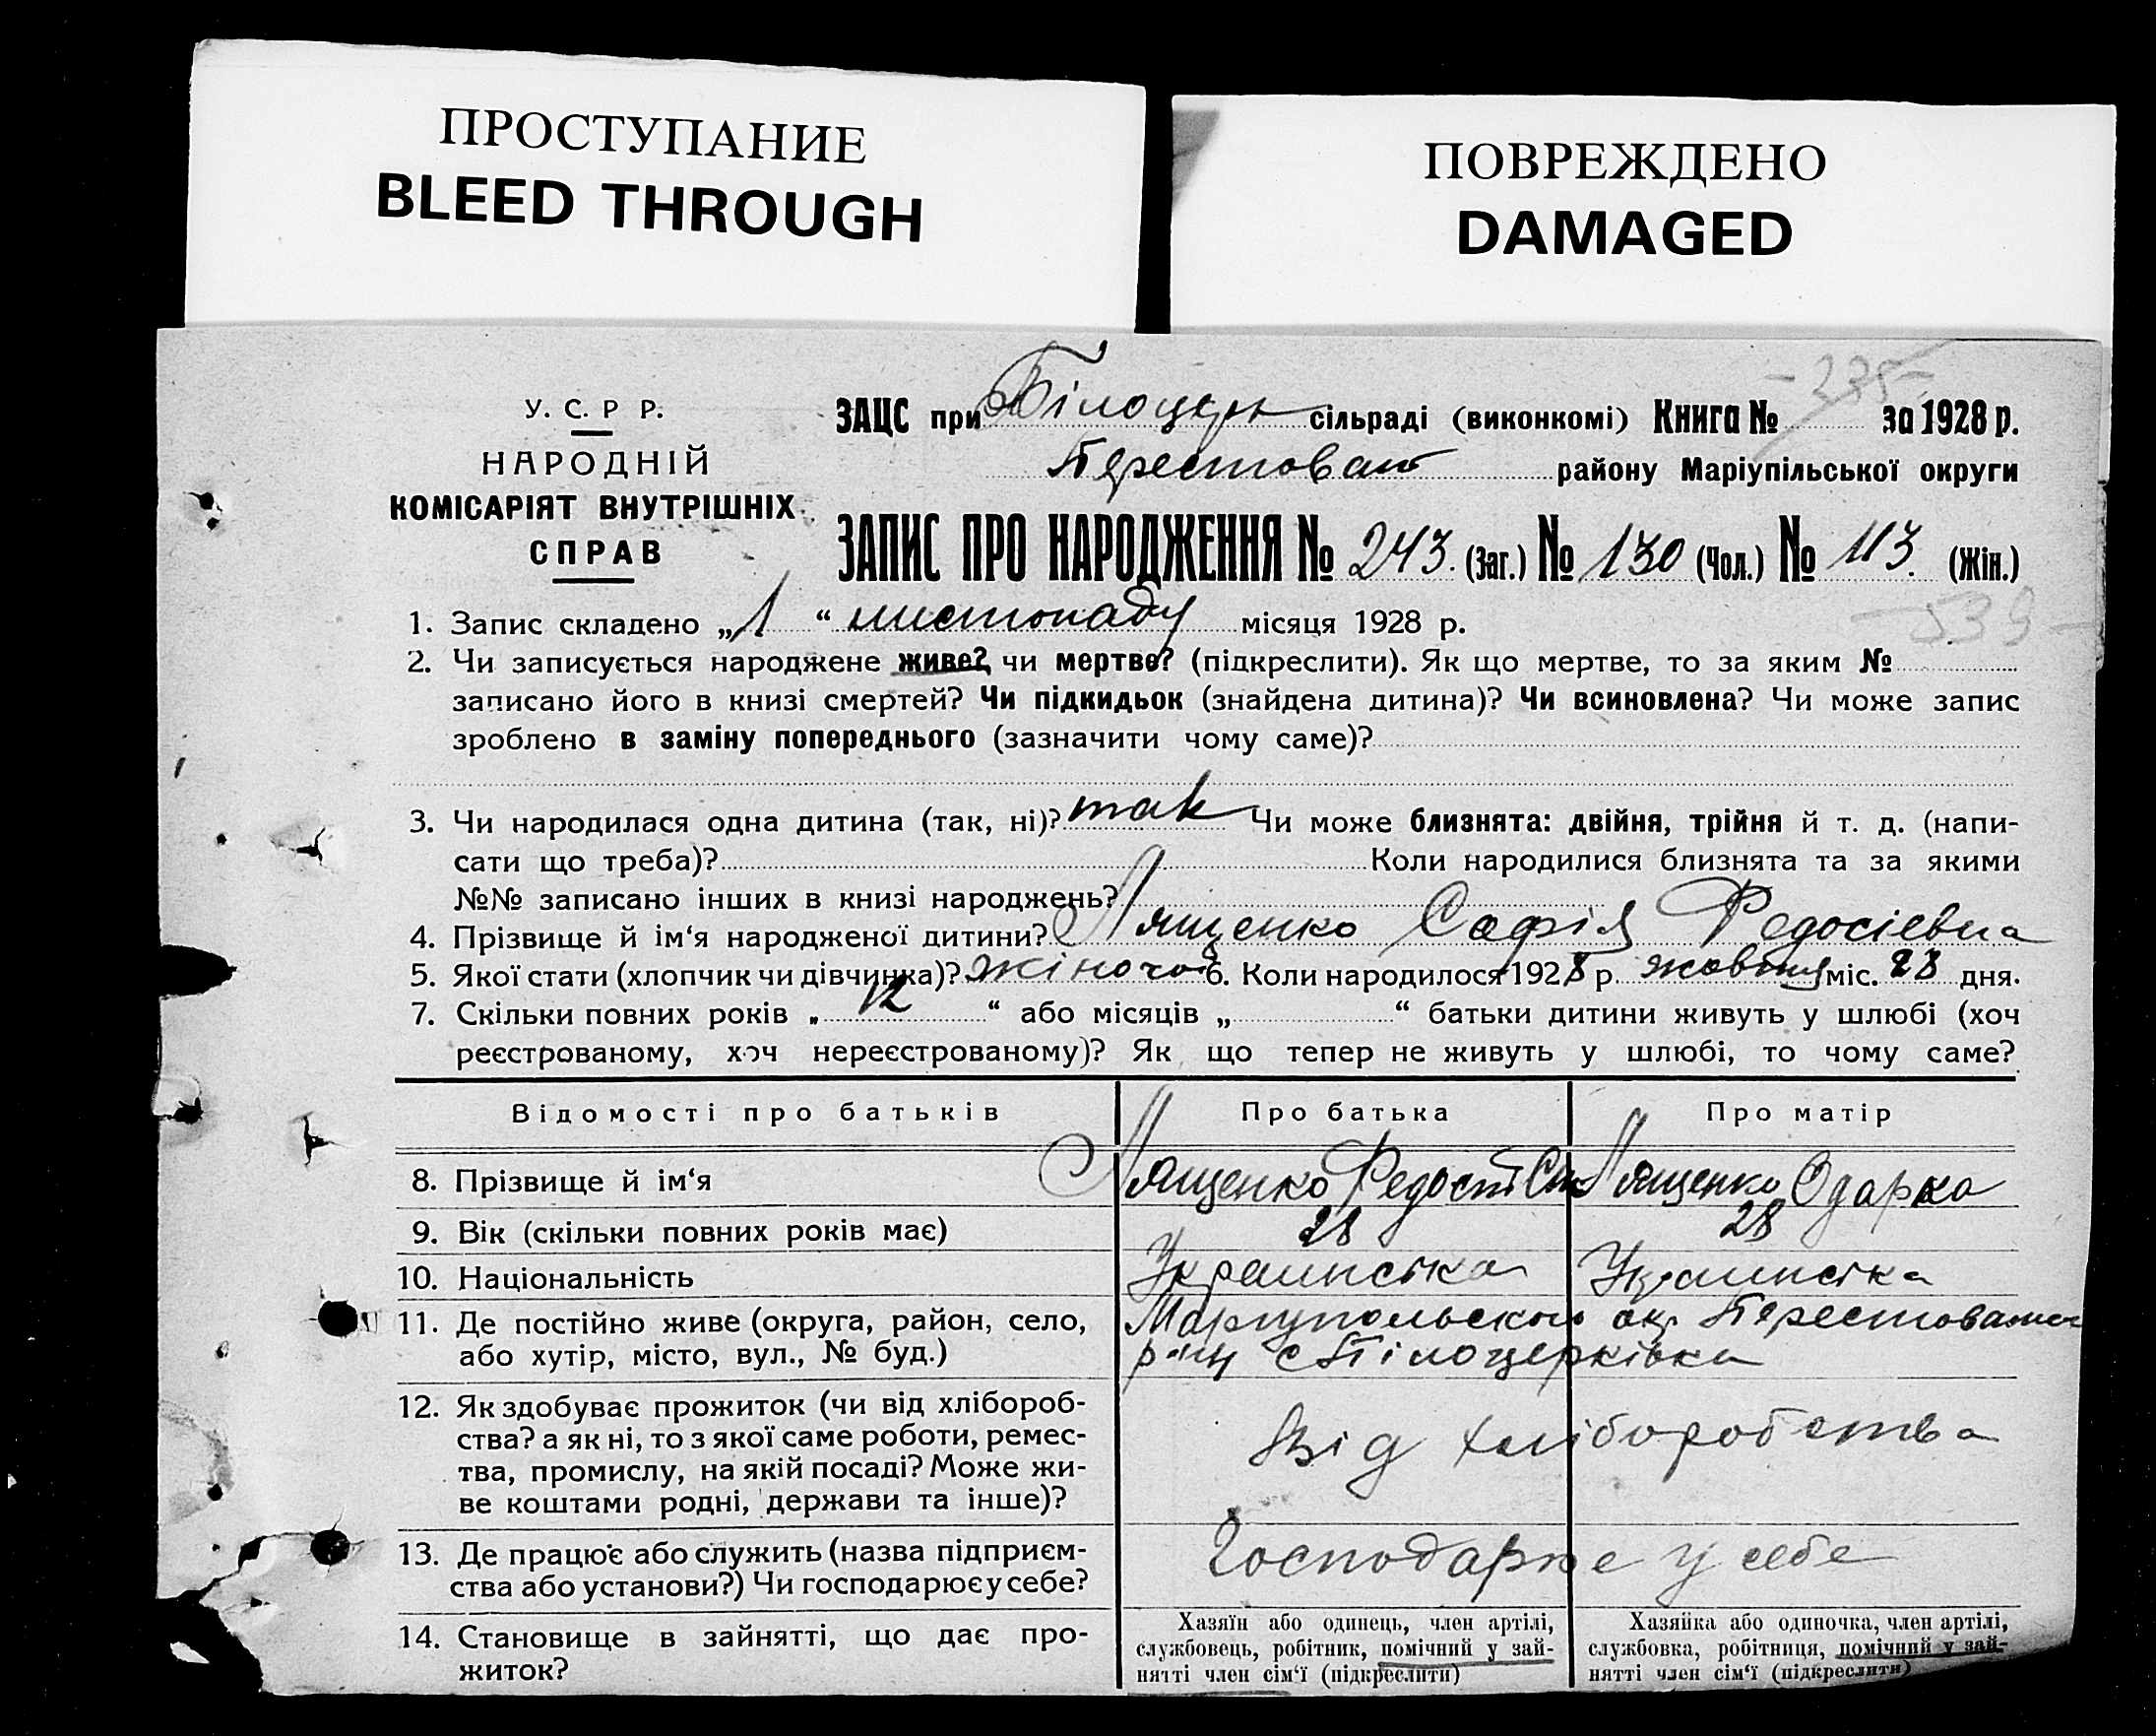 ПРОСТУПАНИЕ
BLEED THROUGH
ПОВРЕЖДЕНО
DAMAGED
У. С. Р Р.
НАРОДНІЙ
КОМІСАРІЯТ ВНУТРІШНІХ
СПРАВ
ЗАЦС при Білоцерк сільраді (виконкомі) Книга № 235 за 1928 р.
району Маріупільської округи
ЗАПИС ПРО НАРОДЖЕННЯ № 243. (Заг.) № 130 (Чол.) № 113. (Жін.)
539
1. Запис складено „1“ листопаду місяця 1928 р.
2. Чи записується народжене живе? чи мертве? (підкреслити). Як що мертве, то за яким №
записано його в книзі смертей? Чи підкидьок (знайдена дитина)? Чи всиновлена? Чи може запис
зроблено в заміну попереднього (зазначити чому саме)?
3. Чи народилася одна дитина (так, ні)? так Чи може близнята: двійня, трійня й т. д. (напи-
сати що треба)? Коли народилися близнята та за якими
№№ записано інших в книзі народжень?
4. Прізвище й ім‘я народженої дитини? Лященко Софія Федосіевна
5. Якої стати (хлопчик чи дівчинка)? жіночої 6. Коли народилося 1928 р. жовтня міс. 28 дня.
7. Скільки повних років „12“ або місяців „ “ батьки дитини живуть у шлюбі (хоч
реєстрованому, хоч нереєстрованому)? Як що тепер не живуть у шлюбі, то чому саме?
Відомості про батьків Про батька Про матір
8. Прізвище й ім‘я Лященко Федост Лященко Одарка
9. Вік (скільки повних років має) 28 28
10. Національність Украинська Украинська
11. Де постійно живе (округа, район, село,
або хутір, місто, вул., № буд.)
Мариупольской ок.
с Білоцерківка
12. Як здобуває прожиток (чи від хлібороб-
ства? а як ні, то з якої саме роботи, ремес-
тва, промислу, на якій посаді? Може жи-
ве коштами родні, держави та інше)?
Від хліборобства
13. Де працює або служить (назва підприєм-
ства або установи?) Чи господарює у себе?
Господарює у себе
14. Становище в зайнятті, що дає про-
житок?
Хазяїн або одинець, член артілі,
службовець, робітник, помічний у зай-
нятті член сім‘ї (підкреслити)
Хазяйка або одиночка, член артілі,
службовка, робітниця, помічний у зай-
нятті член сім‘ї (підкреслити)